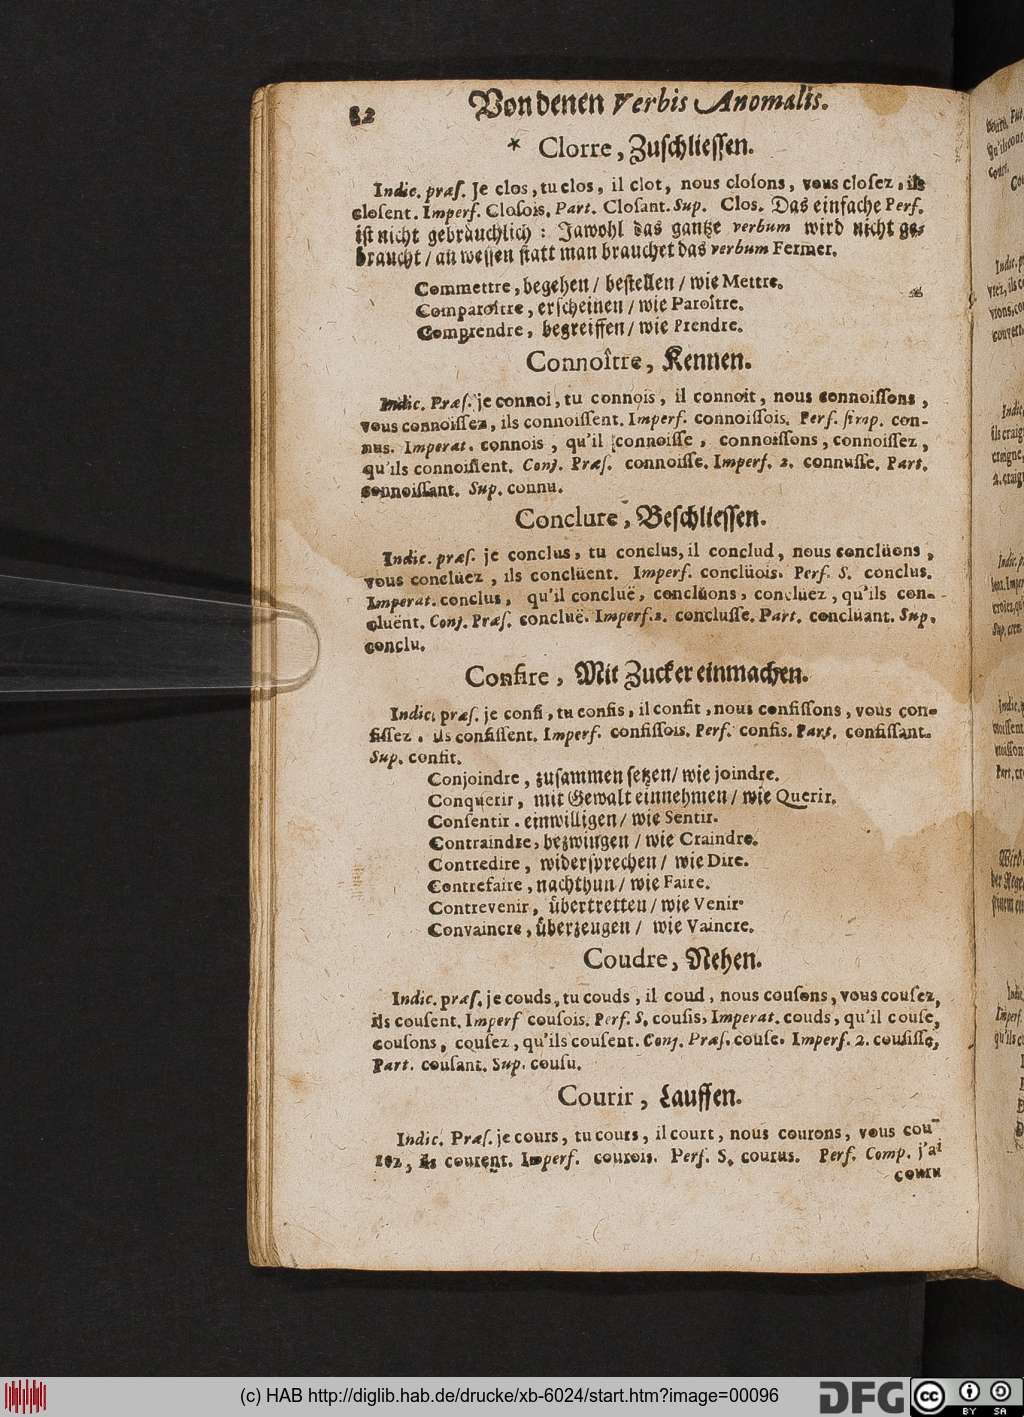 82 Von denen Verbis Anomalis.
* Clorre, Zuschliessen.
Indic. præſ. Je clos, tu clos, il clot, nous cloſons, vous cloſez, ils
cloſent. Imperf. Cloſois. Part. Cloſant. Sup. Clos. Das einfache Perf.
iſt nicht gebräuchlich: Jawohl das gantze verbum wird nicht ge-
braucht / an weſſen ſtatt man brauchet das verbum Fermer.
Commettre, begehen / beſtellen / wie Mettre.
Comparoître, erſcheinen / wie Paroître.
Comprendre, begreiffen / wie Prendre.
Connoître, Kennen.
Indic. Præſ. je connoi, tu connois, il connoit, nous connoiſſons,
vous connoiſſez, ils connoiſſent. Imperf. connoiſſois. Perf. ſimp. con-
nus. Imperat. connois, qu'il connoiſſe, connoiſſons, connoiſſez,
qu'ils connoiſſent. Conj. Præſ. connoiſſe. Imperf. 2. connuſſe. Part.
connoiſſant. Sup. connu.
Conclure, Beſchlieſſen.
Indic. præſ. je conclus, tu conclus, il conclud, nous conclüons,
vous conclüez, ils conclüent. Imperf. conclüois. Perf. S. conclus.
Imperat. conclus, qu'il concluë, conclüons, conclüez, qu'ils con-
cluënt. Conj. Præſ. concluë. Imperf. 2. concluſſe. Part. conclüant. Sup.
conclu.
Confire, Mit Zucker einmachen.
Indic. præſ. je confi, tu confis, il confit, nous confiſſons, vous con-
fiſſez, ils confiſſent. Imperf. confiſſois. Perf. confis. Part. confiſſant.
Sup. confit.
Conjoindre, zuſammen ſetzen / wie joindre.
Conquerir, mit Gewalt einnehmen / wie Querir.
Conſentir. einwilligen / wie Sentir.
Contraindre, bezwingen / wie Craindre.
Contredire, widerſprechen / wie Dire.
Contrefaire, nachthun / wie Faire.
Contrevenir, übertretten / wie Venir.
Convaincre, überzeugen / wie Vaincre.
Coudre, Nehen.
Indic. præſ. je couds, tu couds, il coud, nous couſons, vous couſez,
ils couſent. Imperf couſois. Perf. S. couſis, Imperat. couds, qu'il couſe,
couſons, couſez, qu'ils couſent. Conj. Præſ. couſe. Imperf. 2. couſiſſe,
Part. couſant. Sup. couſu.
Courir, Lauffen.
Indic. Præſ. je cours, tu cours, il court, nous courons, vous cou-
rez, ils courent. Imperf. courois. Perf. S. courus. Perf. Comp. j'ai
couru
(c) HAB http://diglib.hab.de/drucke/xb-6024/start.htm?image=00096
DFG
CC BY SA